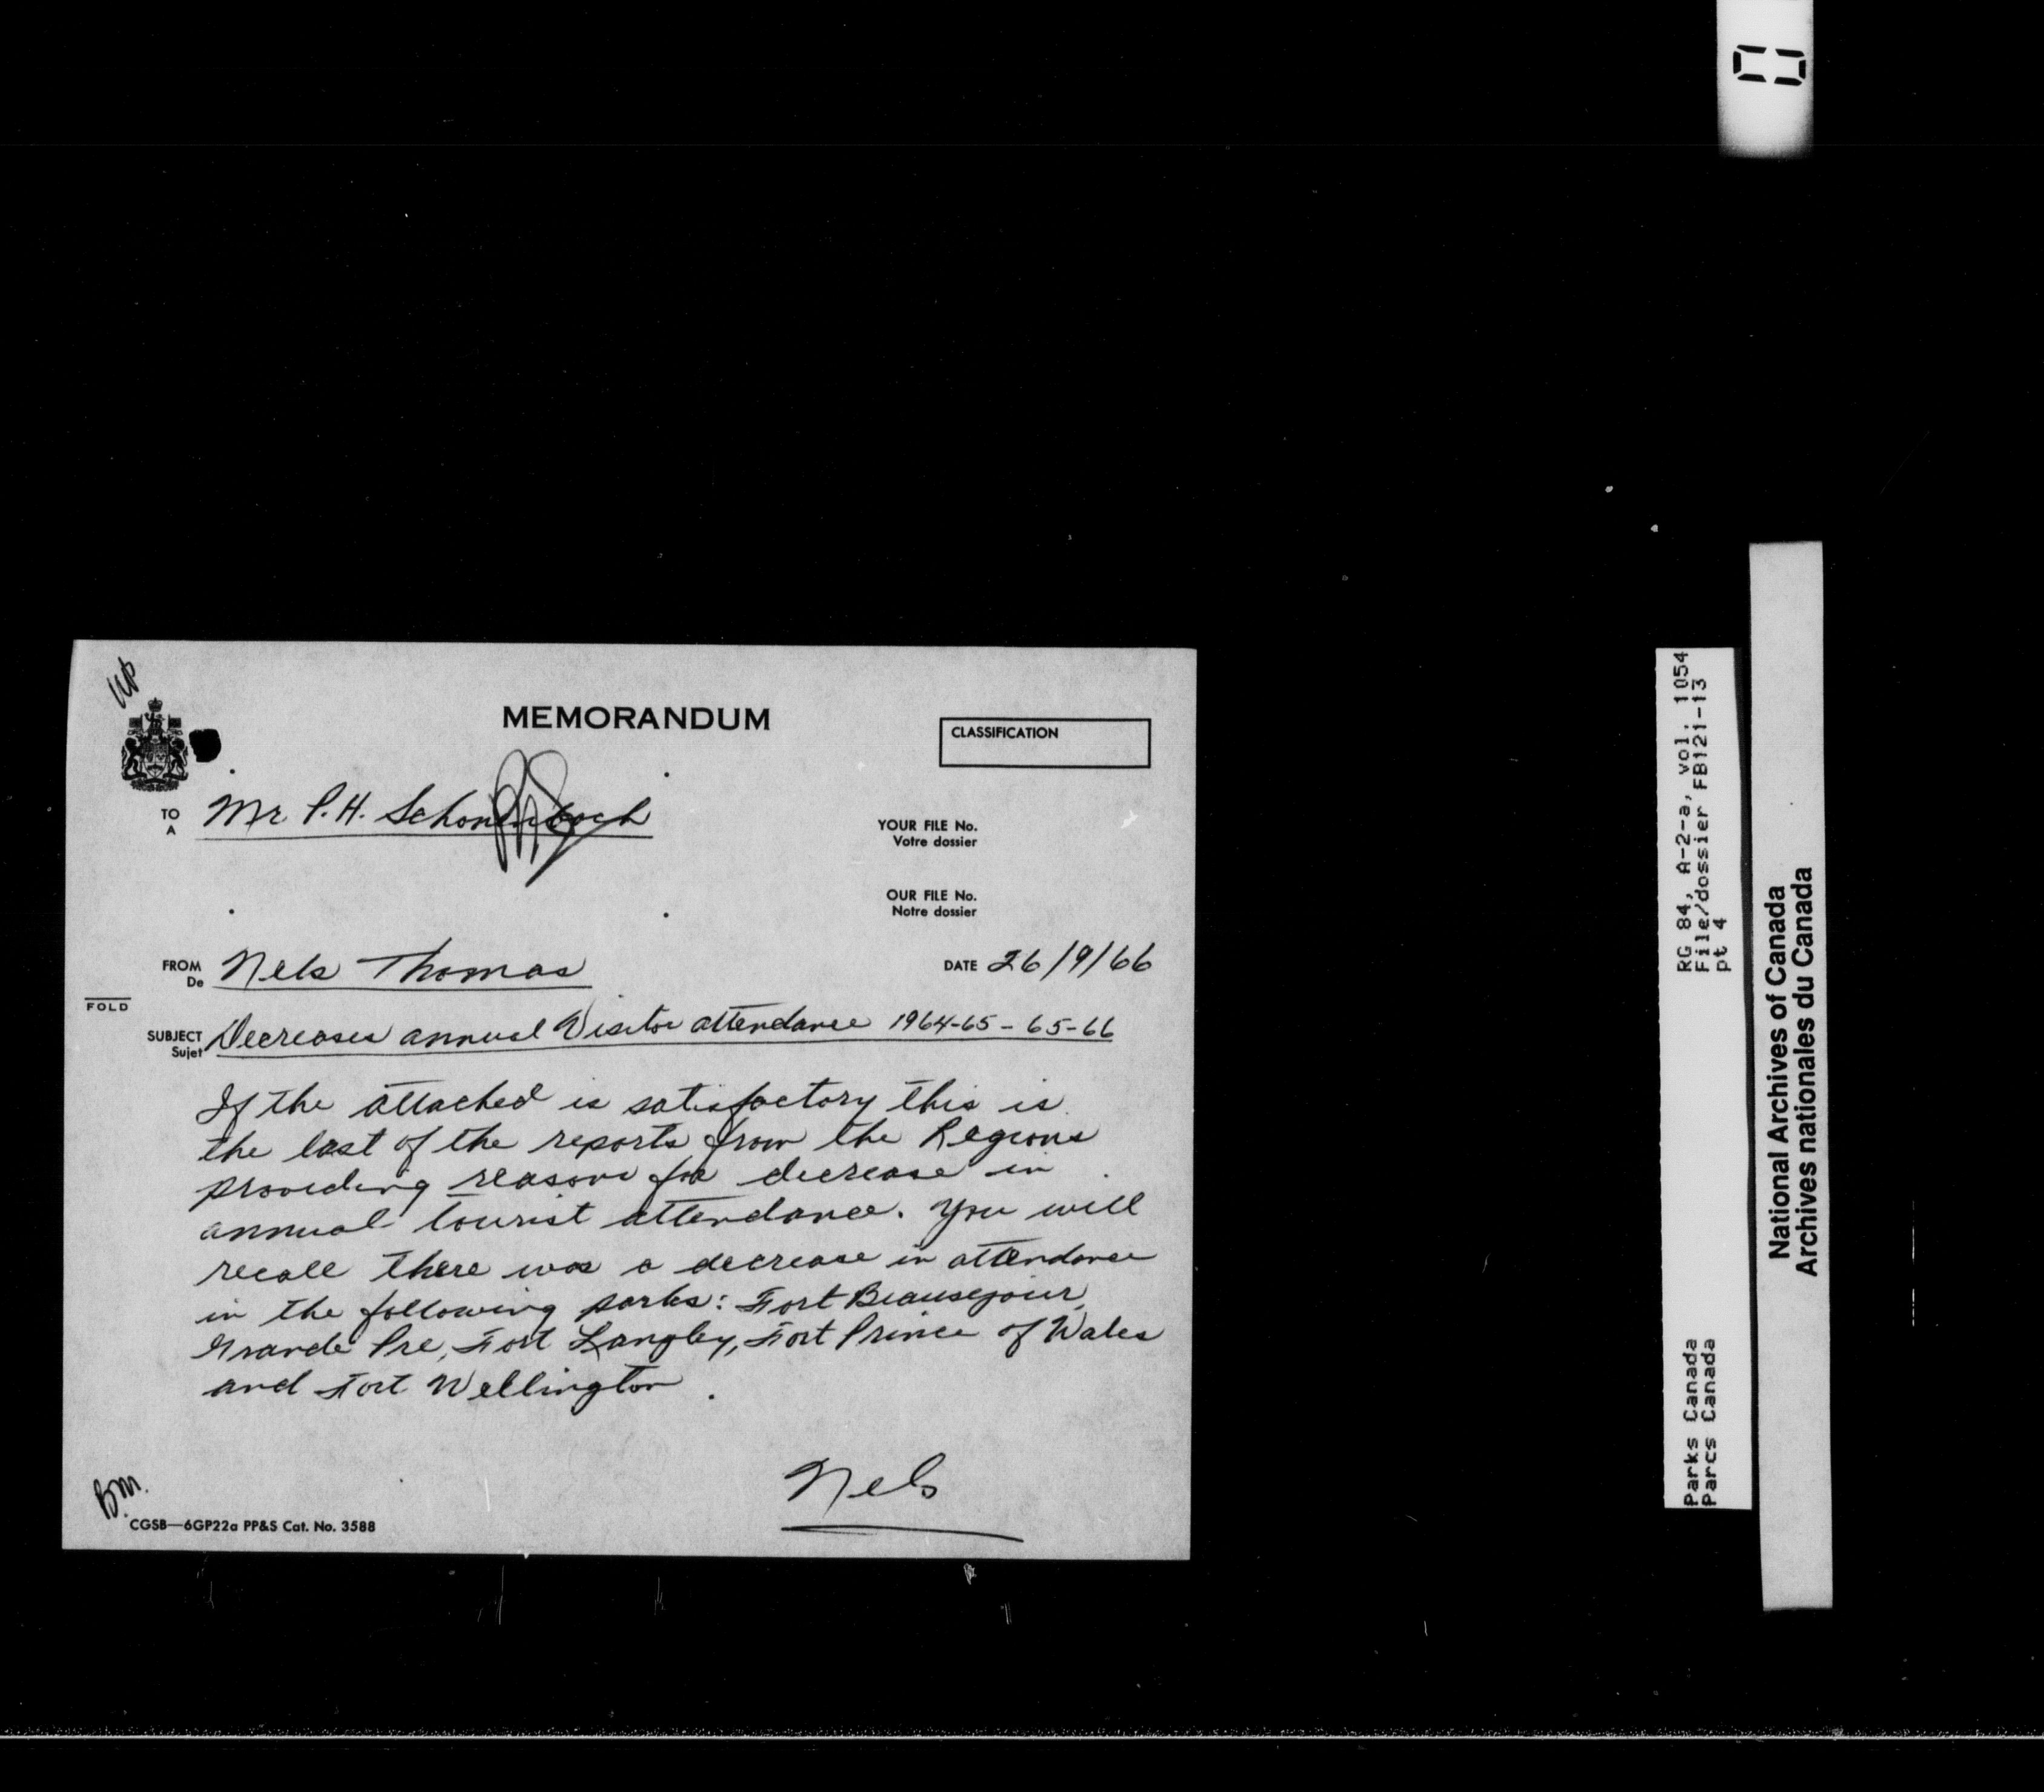 MEMORANDUM
CLASSIFICATION
TO
A
Mr P.H. Schonenbach
YOUR FILE No.
Votre dossier
OUR FILE No.
Notre dossier
FROM
De
Nels Thomas
DATE 26/9/66
FOLD
SUBJECT
Sujet
Decreases annual Visitor attendance 1964-65 - 65-66
If the attached is satisfactory this is
the last of the reports from the Regions
providing reasons for decrease in
annual tourist attendance. You will
recall there was a decrease in attendance
in the following parks: Fort Beausejour,
Grande Pre, Fort Langley, Fort Prince of Wales
and Fort Wellington.
Nels
BM.
CGSB—6GP22a PP&S Cat. No. 3588
RG 84, A-2-a, vol. 1054
File/dossier FB121-13
pt 4
Parks Canada
Parcs Canada
National Archives of Canada
Archives nationales du Canada